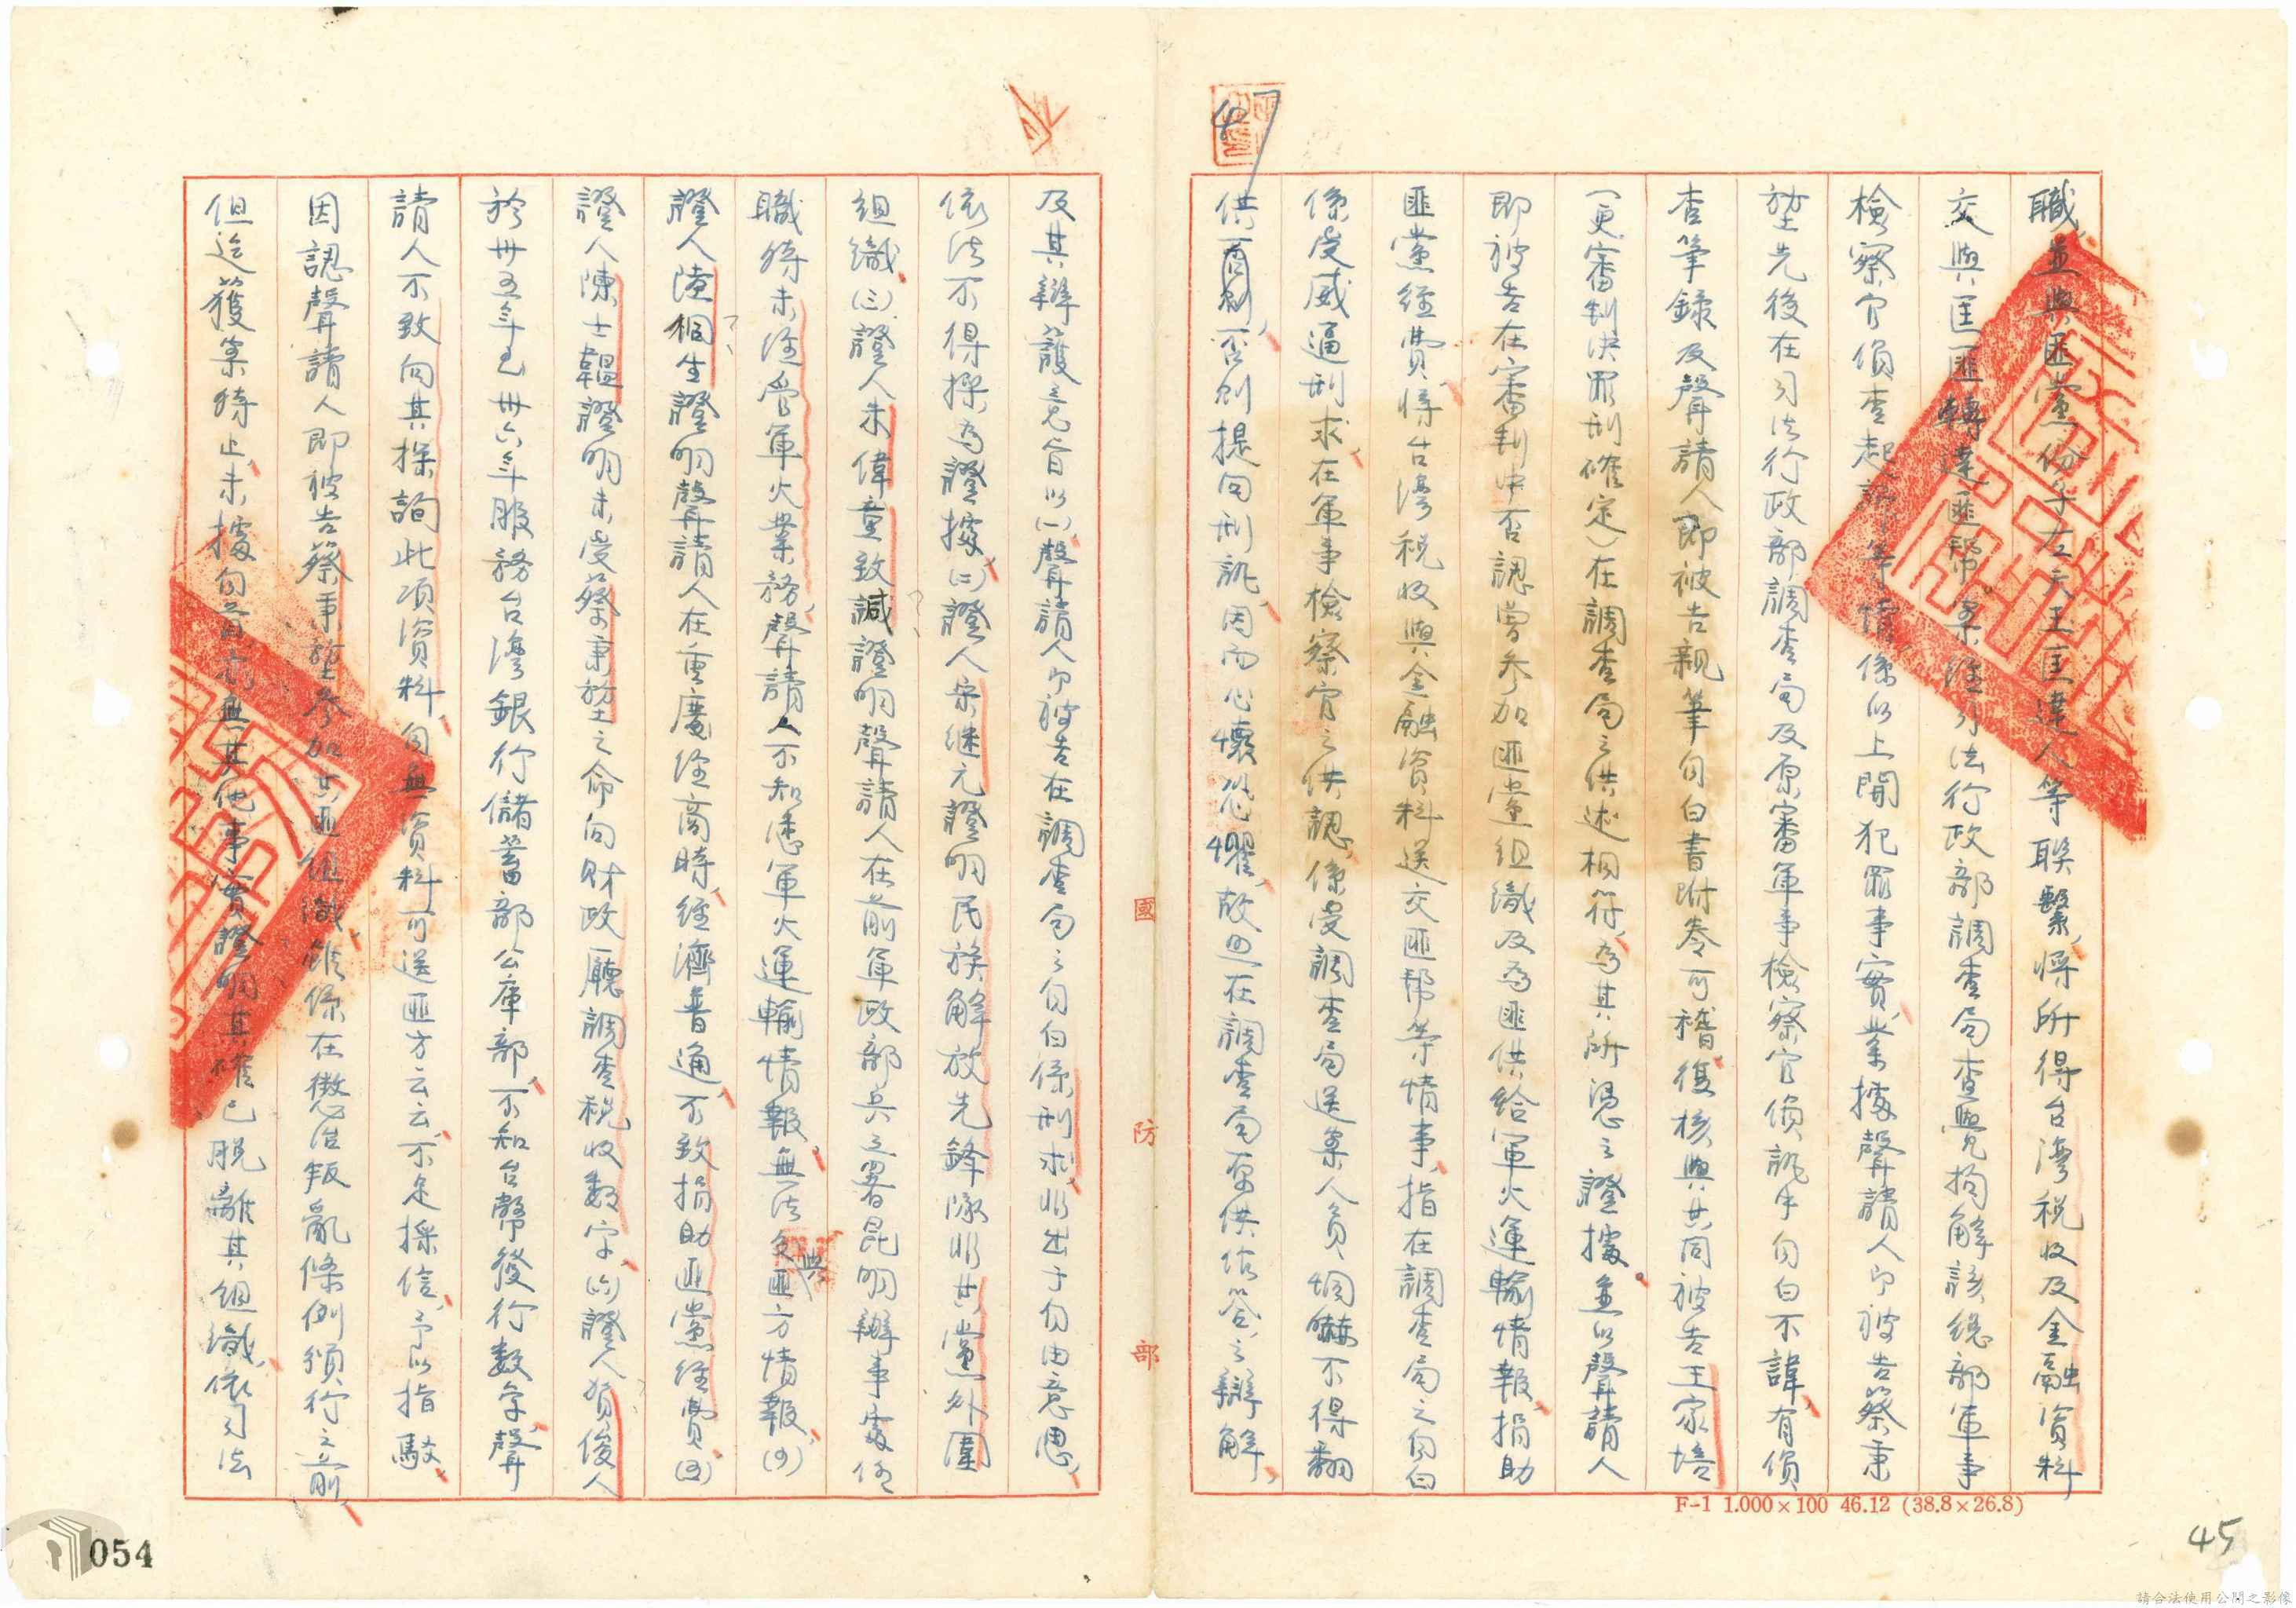 職並與匪黨份子左天王匡達人等聯繫將所得台灣稅收及金融資料
交與匡匪轉達匪幫案經司法行政部調查局查覺拘解該總部軍事
檢察官偵查起訴等情係以上開犯罪事實業據聲請人即被告蔡秉
堃先後在司法行政部調查局及原審軍事檢察官偵訊中自白不諱有偵
查筆錄及聲請人即被告親筆自白書附卷可稽復核與共同被告王家培
(更審判決罪刑確定)在調查局之供述相符為其所憑之證據並以聲請人
即被告在審判中否認曾參加匪黨組織及為匪供給軍火運輸情報捐助
匪黨經費將台灣稅收與金融資料送交匪幫等情事指在調查局之自白
係受威逼刑求在軍事檢察官之供認係受調查局送案人員恫嚇不得翻
供否則提回刑訊因而心懷恐懼故照在調查局原供作答之辯解
及其辯護意旨以(一)聲請人即被告在調查局之自白係刑求非出于自由意思
依法不得採為證據(二)證人宋继元證明民族解放先鋒隊非共黨外圍
組織(三)證人朱偉童致誠證明聲請人在前軍政部兵工署昆明辦事處任
職時未經管軍火業務聲請人不知悉軍火運輸情報無法與匪方情報(四)
證人陸桐生證明聲請人在重慶經商時經濟普通不致捐助匪黨經費(五)
證人陳士韞證明未受蔡秉堃之命向財政廳調查稅收數字(六)證人賀俊人
於卅五年至卅六年服務台灣銀行儲蓄部公庫部不知台幣發行數字聲
請人不致向其探詢此項資料自無資料可送匪方云云不足採信予以指駁
因認聲請人即被告蔡秉堃參加共匪組織雖係在懲治叛亂條例頒行之前
但迄獲案時止未據自首亦無其他事實證明其確已脫離其組織依司法
國防部
F-1 1.000×100 46.12 (38.8×26.8)
47
45
054
請合法使用公開之影像